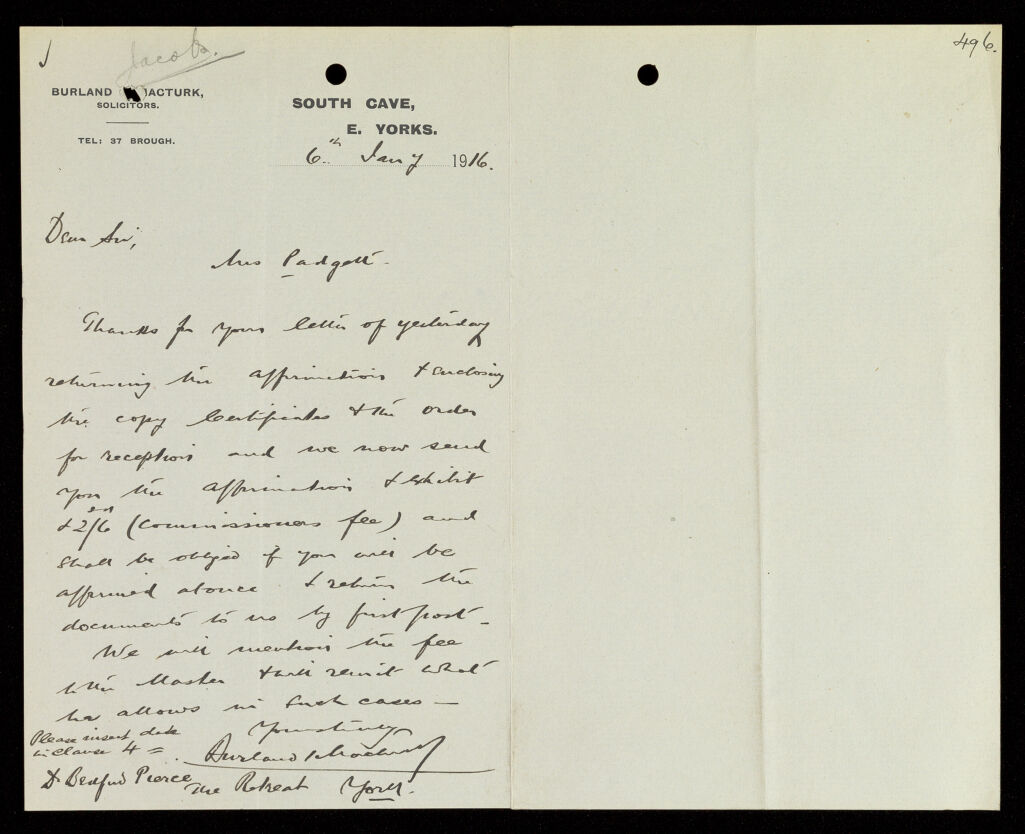 Jacobs.
496.
BURLAND ACTURK,
SOLICITORS.
TEL: 37 BROUGH.
SOUTH CAVE,
E. YORKS.
6th Jany 1916.
Dear Sir,
Mrs Padgett
Thanks for your letter of yesterday
returning the affirmation & enclosing
the copy Certificates & the order
for reception and we now send
you the affirmation & exhibit
& 2/6 (Commissioners fee) and
shall be obliged if you will be
affirmed at once & return the
documents to us by first post -
We will mention the fee
to the Master & will remit what
he allows in such cases —
Yours truly
Burland & Macturk
Please insert date
in Clause 4 =
Dr Bedford Pierce
The Retreat York.